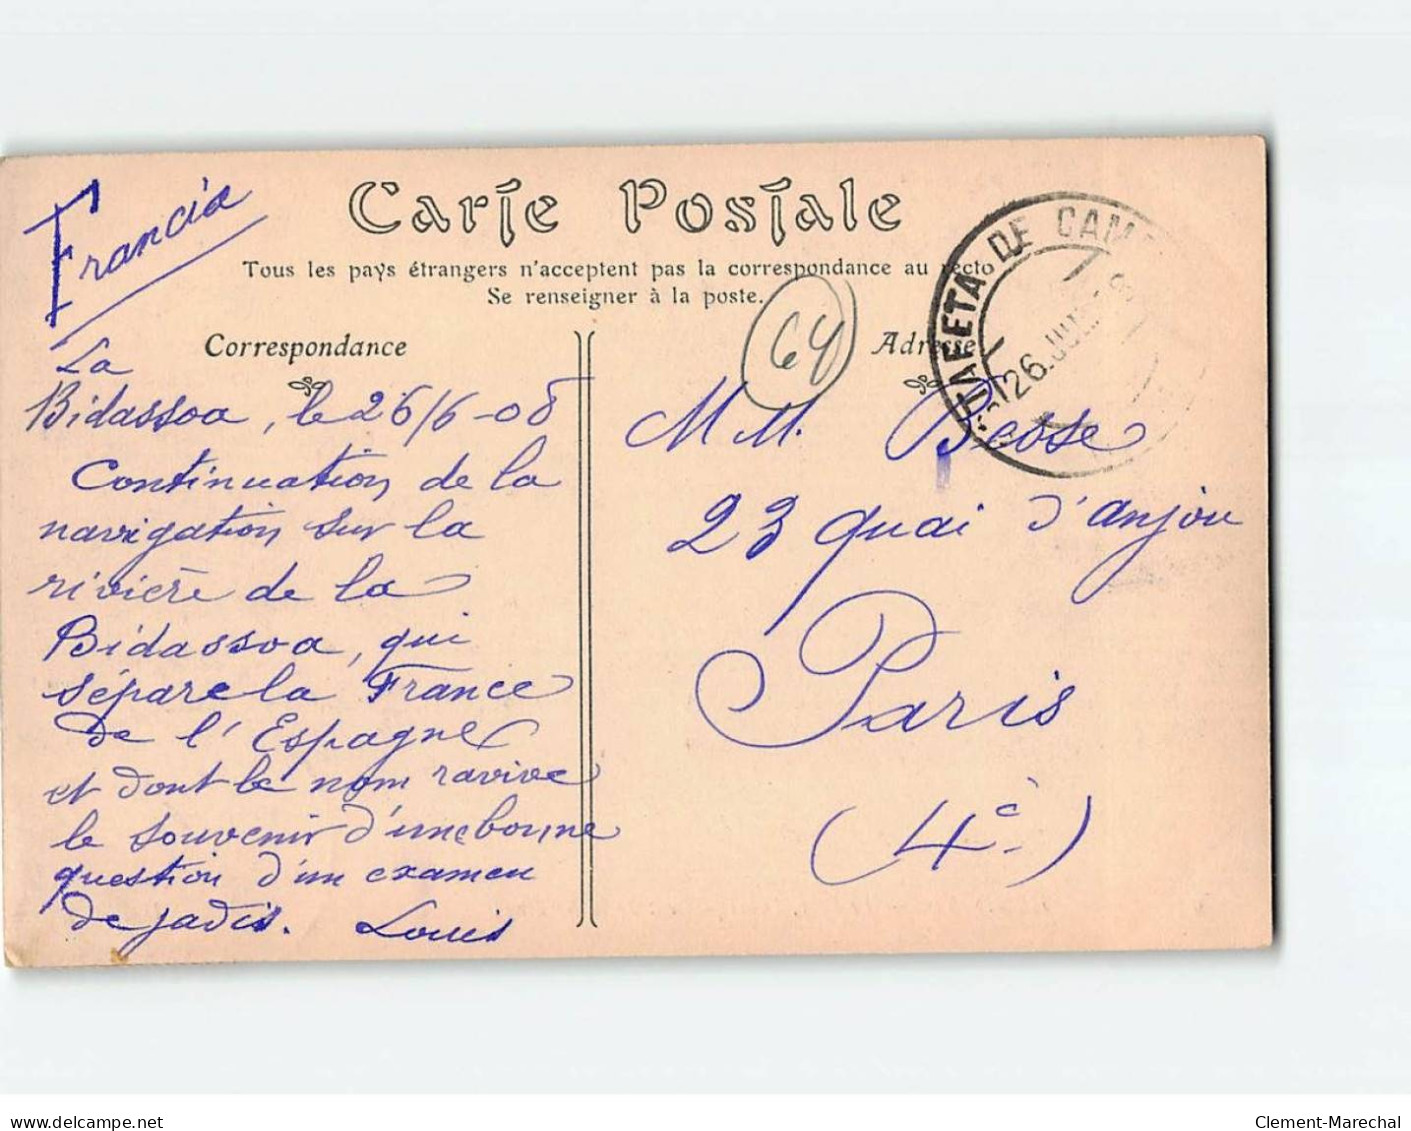 Francia
Carte Postale
Tous les pays étrangers n'acceptent pas la correspondance au recto
Se renseigner à la poste.
Correspondance
La
Bidassoa, le 26/6-08
Continuation de la
navigation sur la
rivière de la
Bidassoa, qui
sépare la France
de l'Espagne
et dont le nom ravive
le souvenir d'une bonne
question d'un examen
de jadis. Louis
64
Adresse
STAFETA DE CAM
26.JUN
M M. Beose
23 quai d'anjou
Paris
(4e)
www.delcampe.net
Clement-Marechal